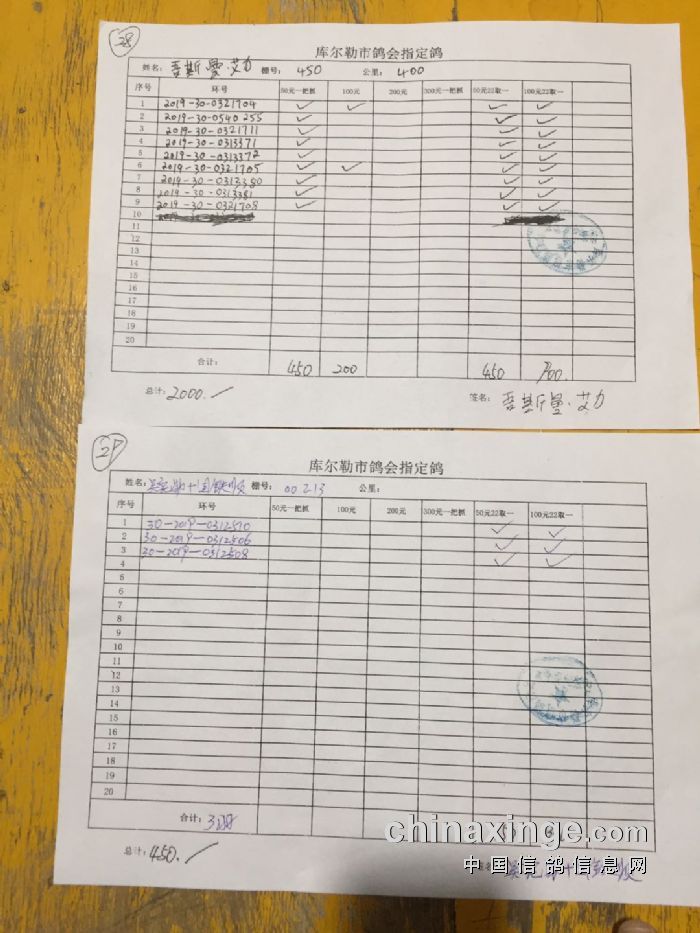 28
库尔勒市鸽会指定鸽
姓名: 吾斯曼·艾力 棚号: 450 公里: 400
序号 环号 50元一把抓 100元 200元 300元一把抓 50元22取一 100元22取一
1 2019-30-0321704 ✓ ✓ ✓ ✓
2 2019-30-0540255 ✓ ✓ ✓
3 2019-30-0321711 ✓ ✓ ✓
4 2019-30-0313371 ✓ ✓ ✓
5 2019-30-0313372 ✓ ✓ ✓
6 2019-30-0321705 ✓ ✓ ✓ ✓
7 2019-30-0313350 ✓ ✓ ✓
8 2019-30-0313381 ✓ ✓ ✓
9 2019-30-0321708 ✓ ✓ ✓
10
11
12
13
14
15
16
17
18
19
20
合计: 450 200 450 900
总计: 2000. 签名: 吾斯曼·艾力
29
库尔勒市鸽会指定鸽
姓名: 棚号: 00213 公里:
序号 环号 50元一把抓 100元 200元 300元一把抓 50元22取一 100元22取一
1 30-2019-0312510 ✓ ✓
2 30-2019-0312506 ✓ ✓
3 30-2019-0312508 ✓ ✓
4
5
6
7
8
9
10
11
12
13
14
15
16
17
18
19
20
合计: 3羽
总计: 450. 签名:
chinaxinge.com
中国信鸽信息网